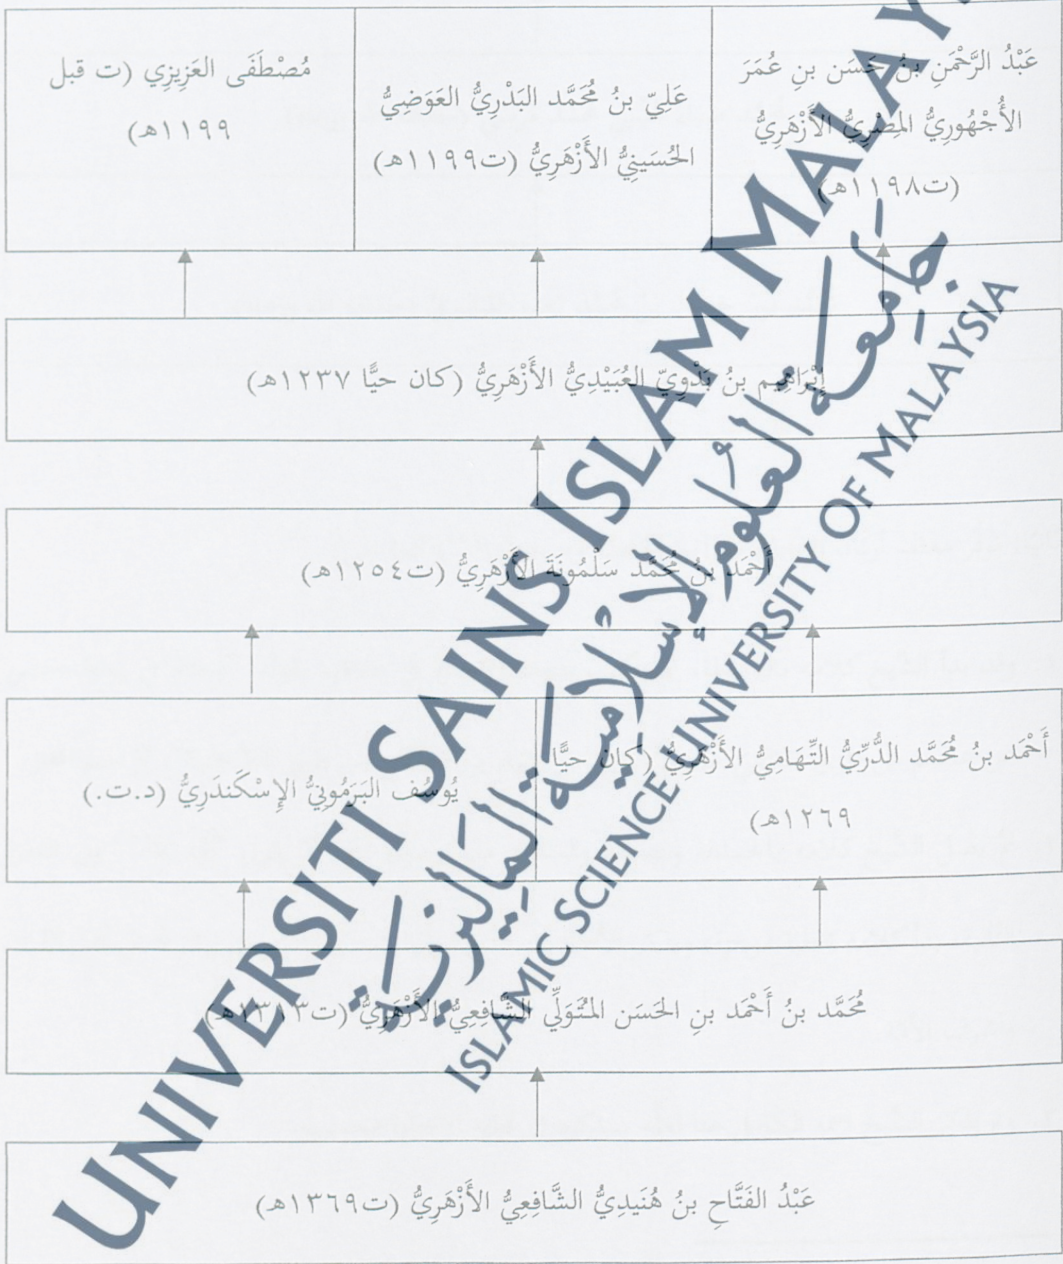 عَبْدُ الرَّحْمَنِ بنُ حَسَن بنِ عُمَرَ
الأُجْهُورِيُّ المِصْرِيُّ الأَزْهَرِيُّ
(ت١١٩٨هـ)
عَلِيّ بنُ مُحَمَّد البَدْرِيُّ العَوَضِيُّ
الحُسَيْنِيُّ الأَزْهَرِيُّ (ت١١٩٩هـ)
مُصْطَفَى العَزِيزِي (ت قبل
١١٩٩هـ)
إِبْرَاهِيم بنُ بَدْوِيّ العُبَيْدِيُّ الأَزْهَرِيُّ (كان حيًّا ١٢٣٧هـ)
أَحْمَد بنُ مُحَمَّد سَلْمُونَةَ الأَزْهَرِيُّ (ت١٢٥٤هـ)
أَحْمَد بنُ مُحَمَّد الدُّرِّيُّ التِّهَامِيُّ الأَزْهَرِيُّ (كان حيًّا
١٢٦٩هـ)
يُوسُف البَرَمُونِيُّ الإِسْكَندَرِيُّ (د.ت.)
مُحَمَّد بنُ أَحْمَد بنِ الحَسَن المُتَوَلِّي الشَّافِعِيُّ الأَزْهَرِيُّ (ت١٣١٣هـ)
عَبْدُ الفَتَّاحِ بنُ هُنَيدِيُّ الشَّافِعِيُّ الأَزْهَرِيُّ (ت١٣٦٩هـ)
UNIVERSITI SAINS ISLAM MALAY
جامعة العلوم الإسلامية الماليزية
ISLAMIC SCIENCE UNIVERSITY OF MALAYSIA